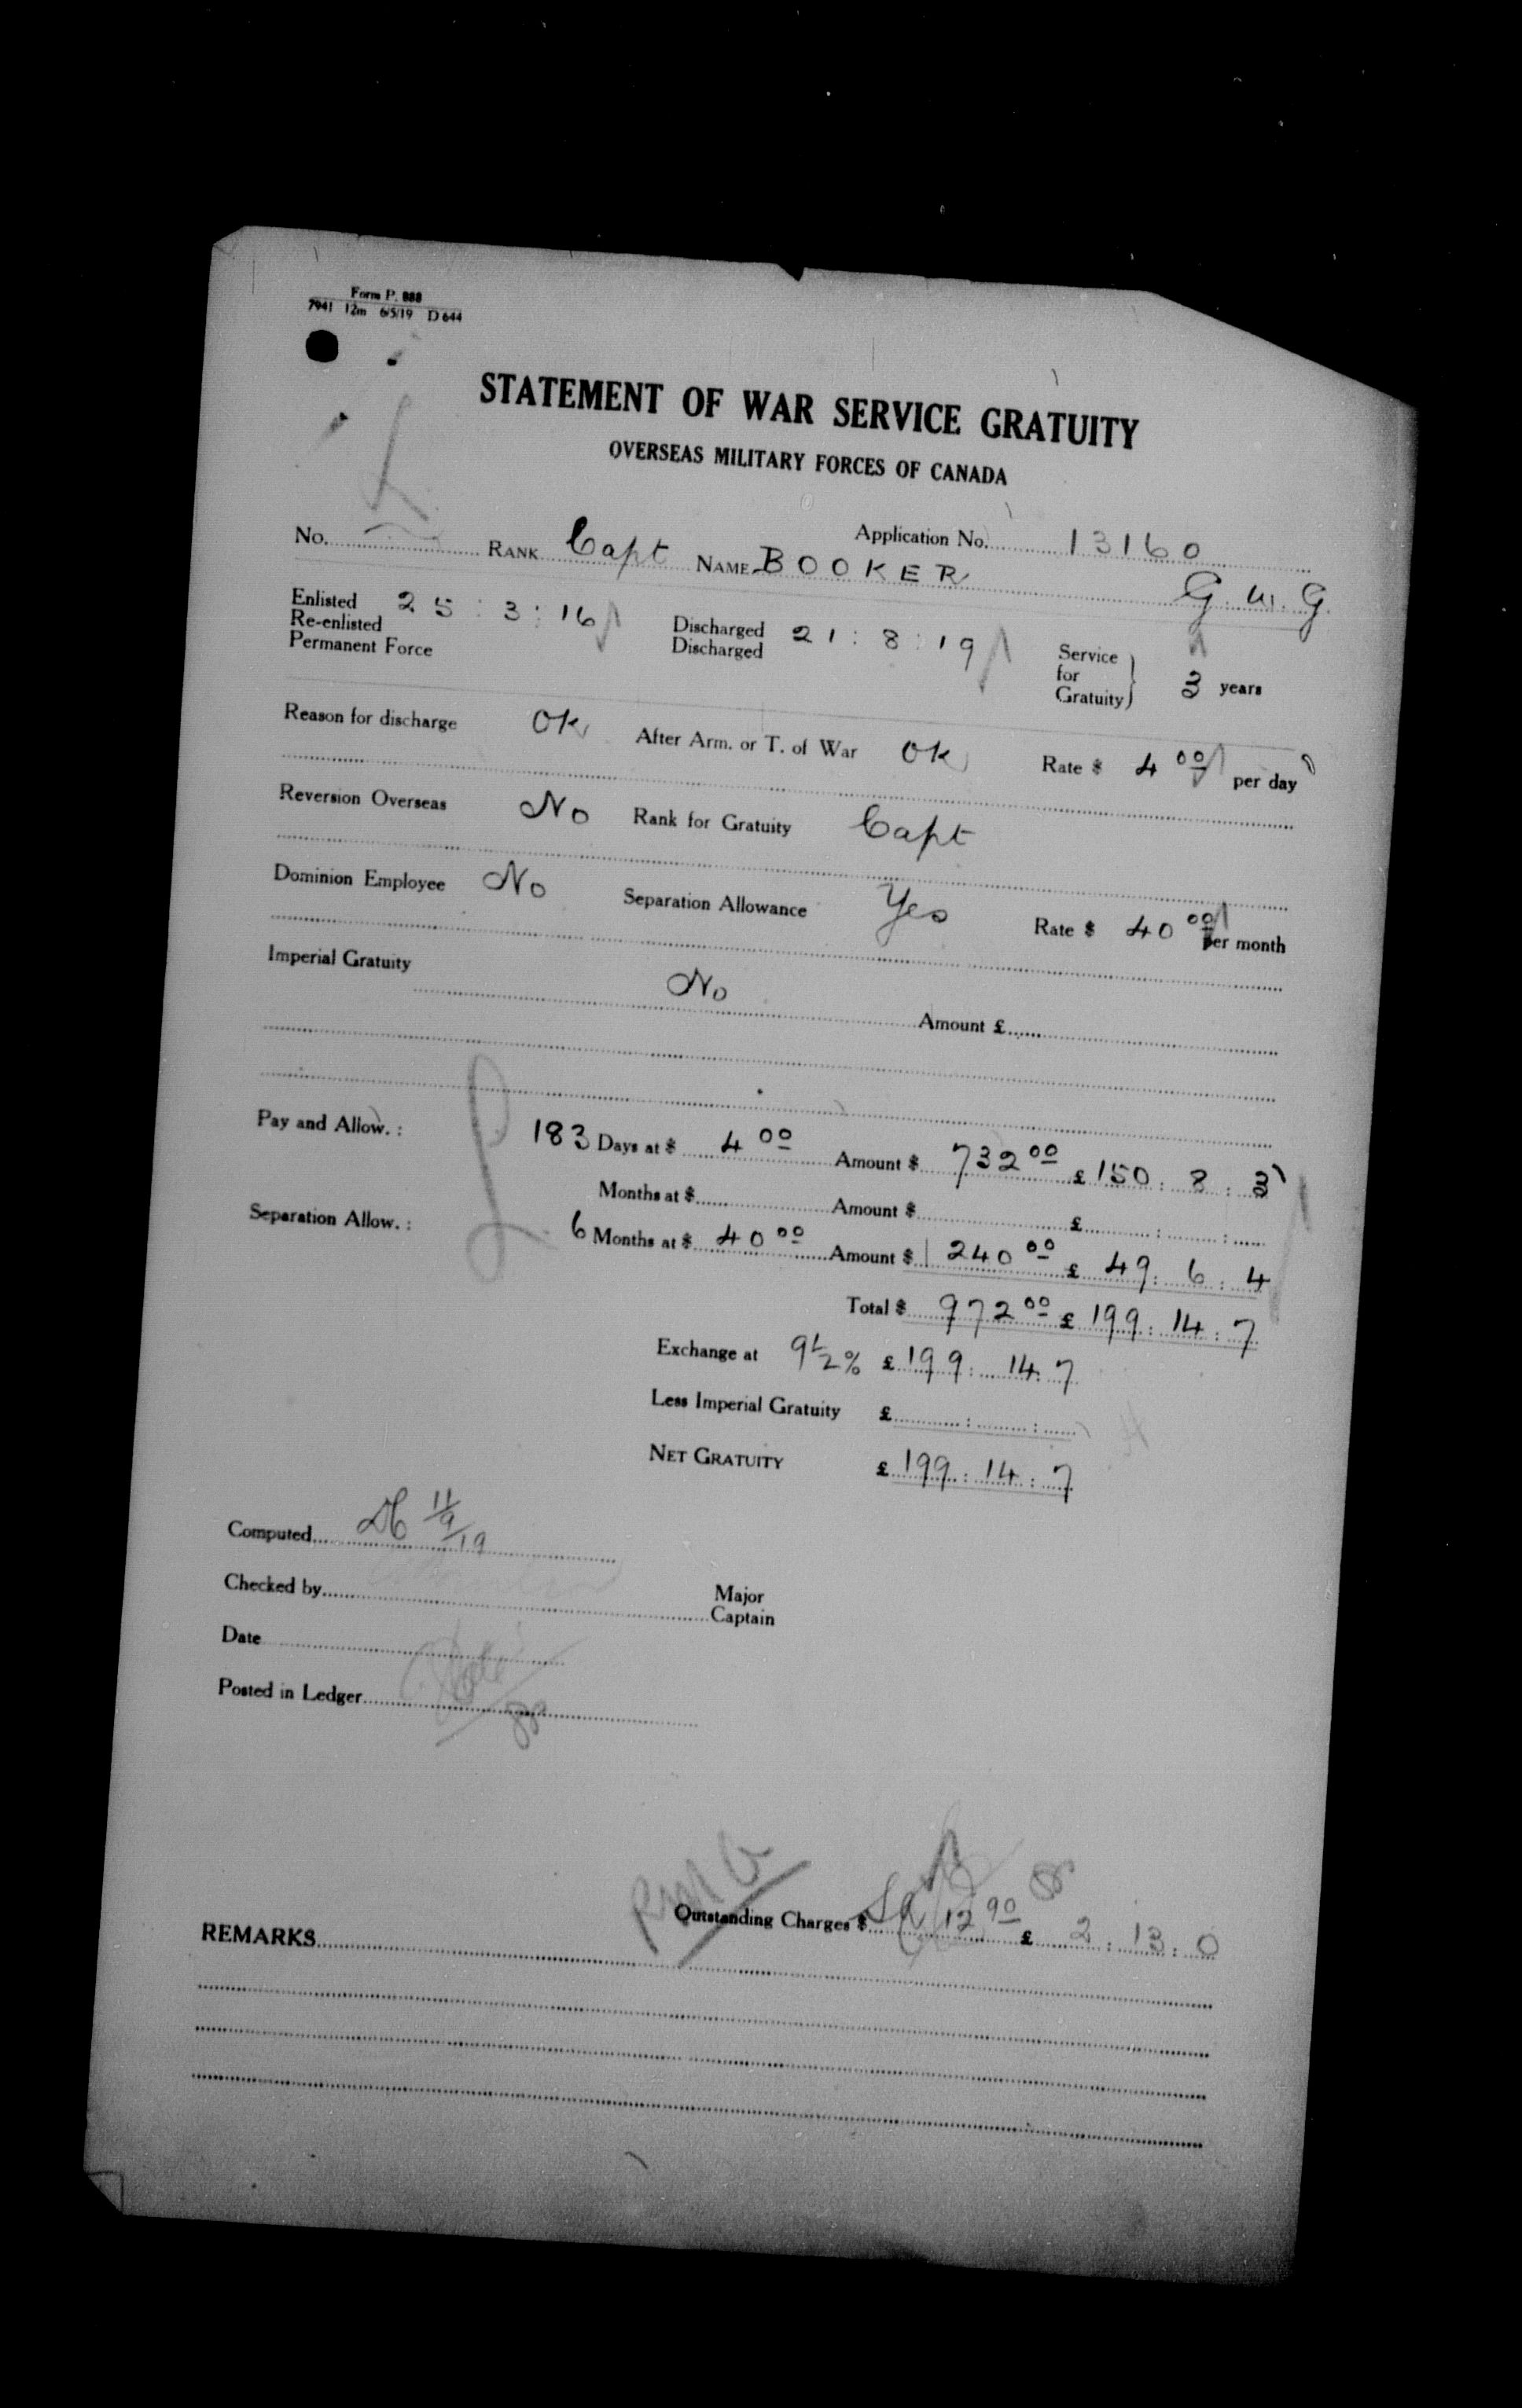 Form P. 888
7941 12m 6/5/19 D 644
STATEMENT OF WAR SERVICE GRATUITY
OVERSEAS MILITARY FORCES OF CANADA
Application No. 13160
No. RANK Capt NAME BOOKER G. W. G.
Enlisted 25 : 3 : 16 Discharged 21 : 8 : 19
Re-enlisted Discharged
Permanent Force
Service for Gratuity } 3 years
Reason for discharge OK After Arm. or T. of War OK Rate $ 4 00 per day
Reversion Overseas No Rank for Gratuity Capt
Dominion Employee No Separation Allowance Yes Rate $ 40 00 per month
Imperial Gratuity No Amount £
Pay and Allow. : 183 Days at $ 4 00 Amount $ 732 00 £ 150 : 8 : 3
Months at $ Amount $ £ : :
Separation Allow. : 6 Months at $ 40 00 Amount $ 240 00 £ 49 : 6 : 4
Total $ 972 00 £ 199 : 14 : 7
Exchange at 9 1/2 % £ 199 : 14 : 7
Less Imperial Gratuity £ : :
NET GRATUITY £ 199 : 14 : 7
Computed 11/9/19
Checked by Major
Captain
Date
Posted in Ledger
Outstanding Charges $ 12 90 £ 2 : 13 : 0
REMARKS